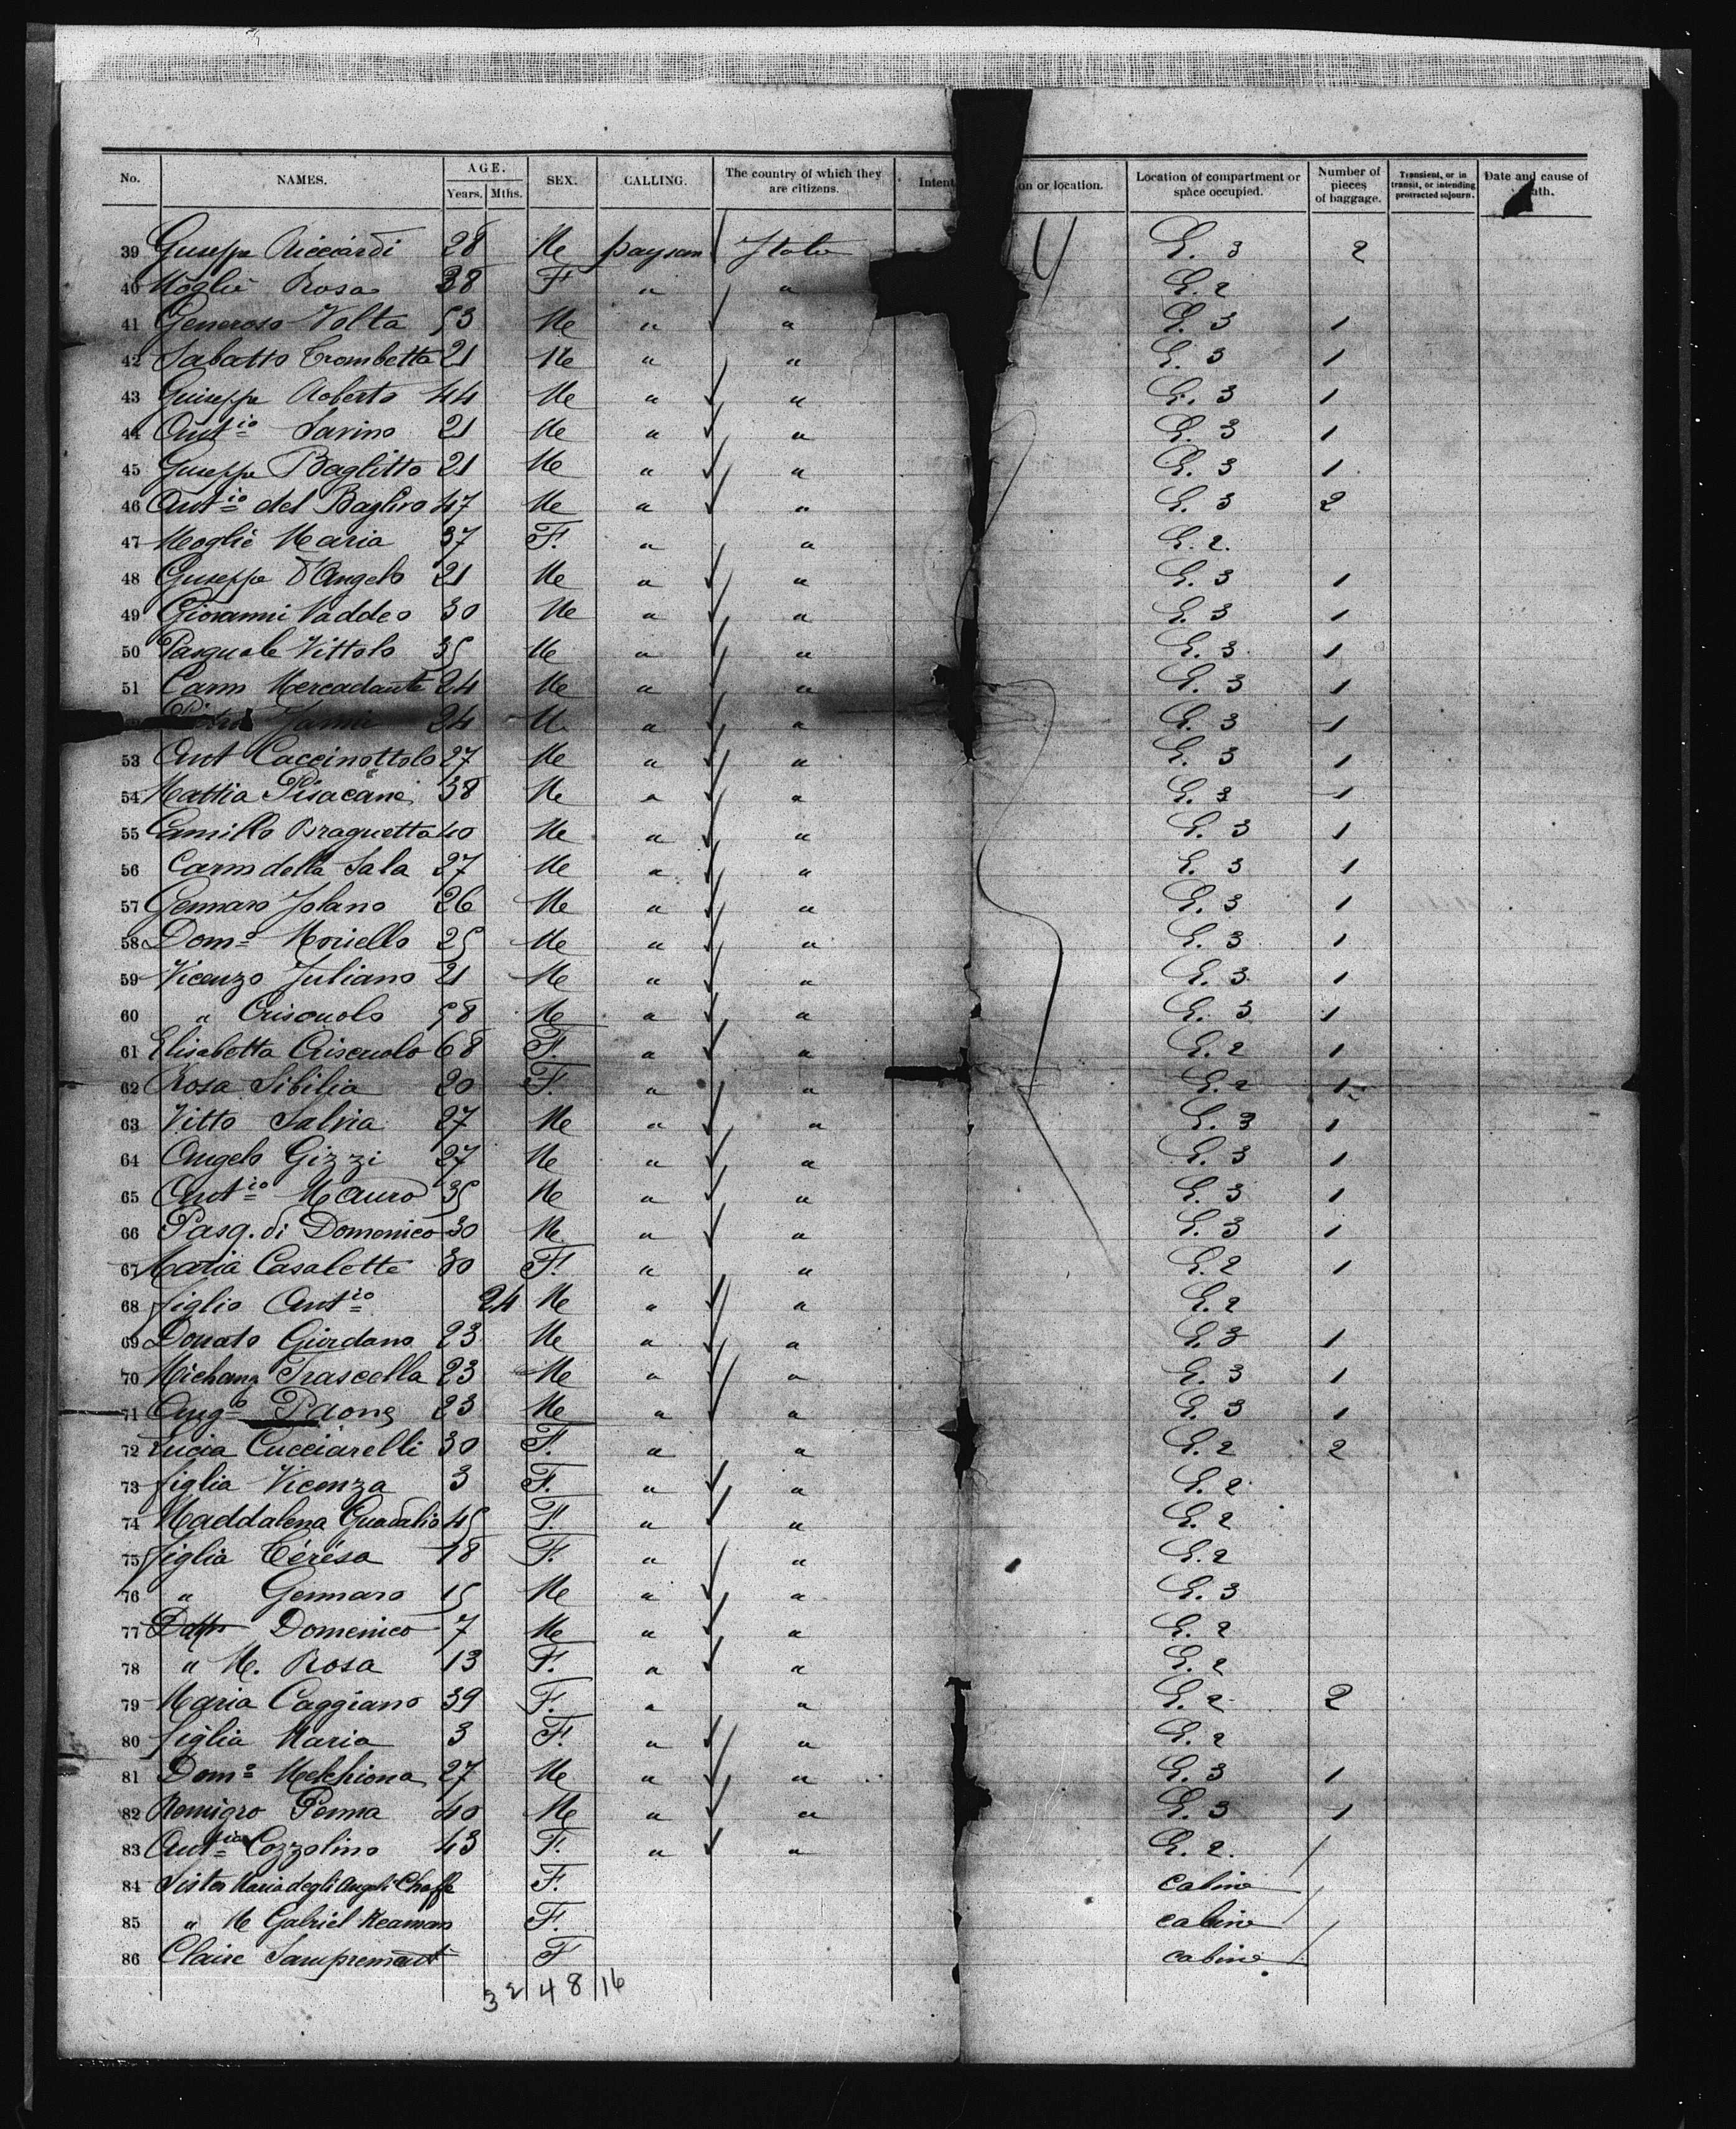 No. NAMES. AGE. Years. Mths. SEX. CALLING. The country of which they are citizens. Intent on or location. Location of compartment or space occupied. Number of pieces of baggage. Transient, or in transit, or intending protracted sojourn. Date and cause of ath.
39 Giuseppe Ricciardi 28 Me paysan Italie 4 E. 3 2
40 Moglie Rosa 38 F " " E. 2
41 Generoso Volta 53 Me " " E. 3 1
42 Sabatto Trombetta 21 Me " " E. 3 1
43 Giuseppe Roberto 44 Me " " E. 3 1
44 Antio Savino 21 Me " " E. 3 1
45 Giuseppe Baglitto 21 Me " " E. 3 1
46 Antio del Baglivo 47 Me " " E. 3 2
47 Moglie Maria 37 F. " " E. 2.
48 Giuseppe d'Angelo 21 Me " " E. 3 1
49 Giovanni Vaddeo 30 Me " " E. 3 1
50 Pasquale Vittolo 35 Me " " E. 3 1
51 Carm Mercadante 24 Me " " E. 3 1
24 M " " E. 3 1
53 Ant Caccinottolo 27 Me " " E. 3 1
54 Mattia Pisacane 38 Me " " E. 3 1
55 Camillo Braguetta 40 Me " " E. 3 1
56 Carm della Sala 27 Me " " E. 3 1
57 Gennaro Jolano 26 Me " " E. 3 1
58 Domo Moriello 25 Me " " E. 3 1
59 Vicenzo Juliano 21 Me " " E. 3 1
60 " Criscuolo 58 Me " " E. 3 1
61 Elisabetta Criscuolo 68 F. " " E. 2 1
62 Rosa Sibilia 20 F. " " E. 2 1
63 Vitto Salvia 27 Me " " E. 3 1
64 Angelo Gizzi 27 Me " " E. 3 1
65 Antio Mauro 35 Me " " E. 3 1
66 Pasq. di Domenico 30 Me " " E. 3 1
67 Maria Casalette 30 F. " " E. 2 1
68 figlio Antio 24 Me " " E. 2
69 Donato Giordano 23 Me " " E. 3 1
70 Michang Frascella 23 Me " " E. 3 1
71 Ango Paone 23 Me " " E. 3 1
72 Lucia Cucciarelli 30 F. " " E. 2 2
73 figlia Vicenza 3 F. " " E. 2
74 Maddalena Guadalio 45 F. " " E. 2
75 figlia Térésa 18 F. " " E. 2
76 " Gennaro 15 Me " " E. 3
77 Domenico 7 Me " " E. 2
78 " M. Rosa 13 F. " " E. 2
79 Maria Caggiano 39 F. " " E. 2 2
80 figlia Maria 3 F. " " E. 2
81 Domo Melchiona 27 Me " " E. 3 1
82 Remigro Penna 40 Me " " E. 3 1
83 Antia Cozzolino 43 F. " " E. 2. /
84 Sister Maria degli Angeli Chaffe F. cabine /
85 " M Gabriel Reaman F. cabine /
86 Claire Sampremant F cabine /
32 48 16